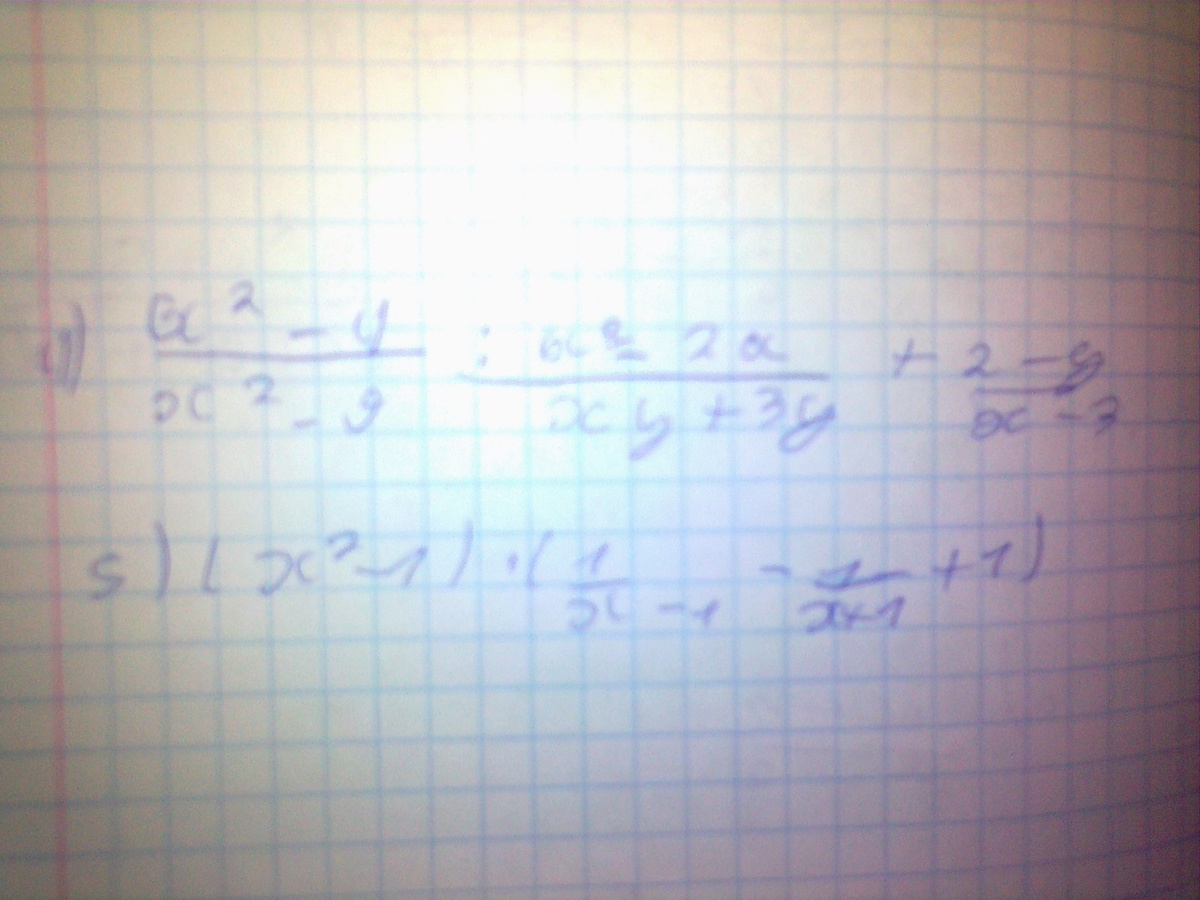 1) (a² - 4)/(x² - 9) : (a² - 2a)/(xy + 3y) + (2 - y)/(x - 3)
5) (x² - 1) · (1/(x - 1) - 1/(x+1) + 1)